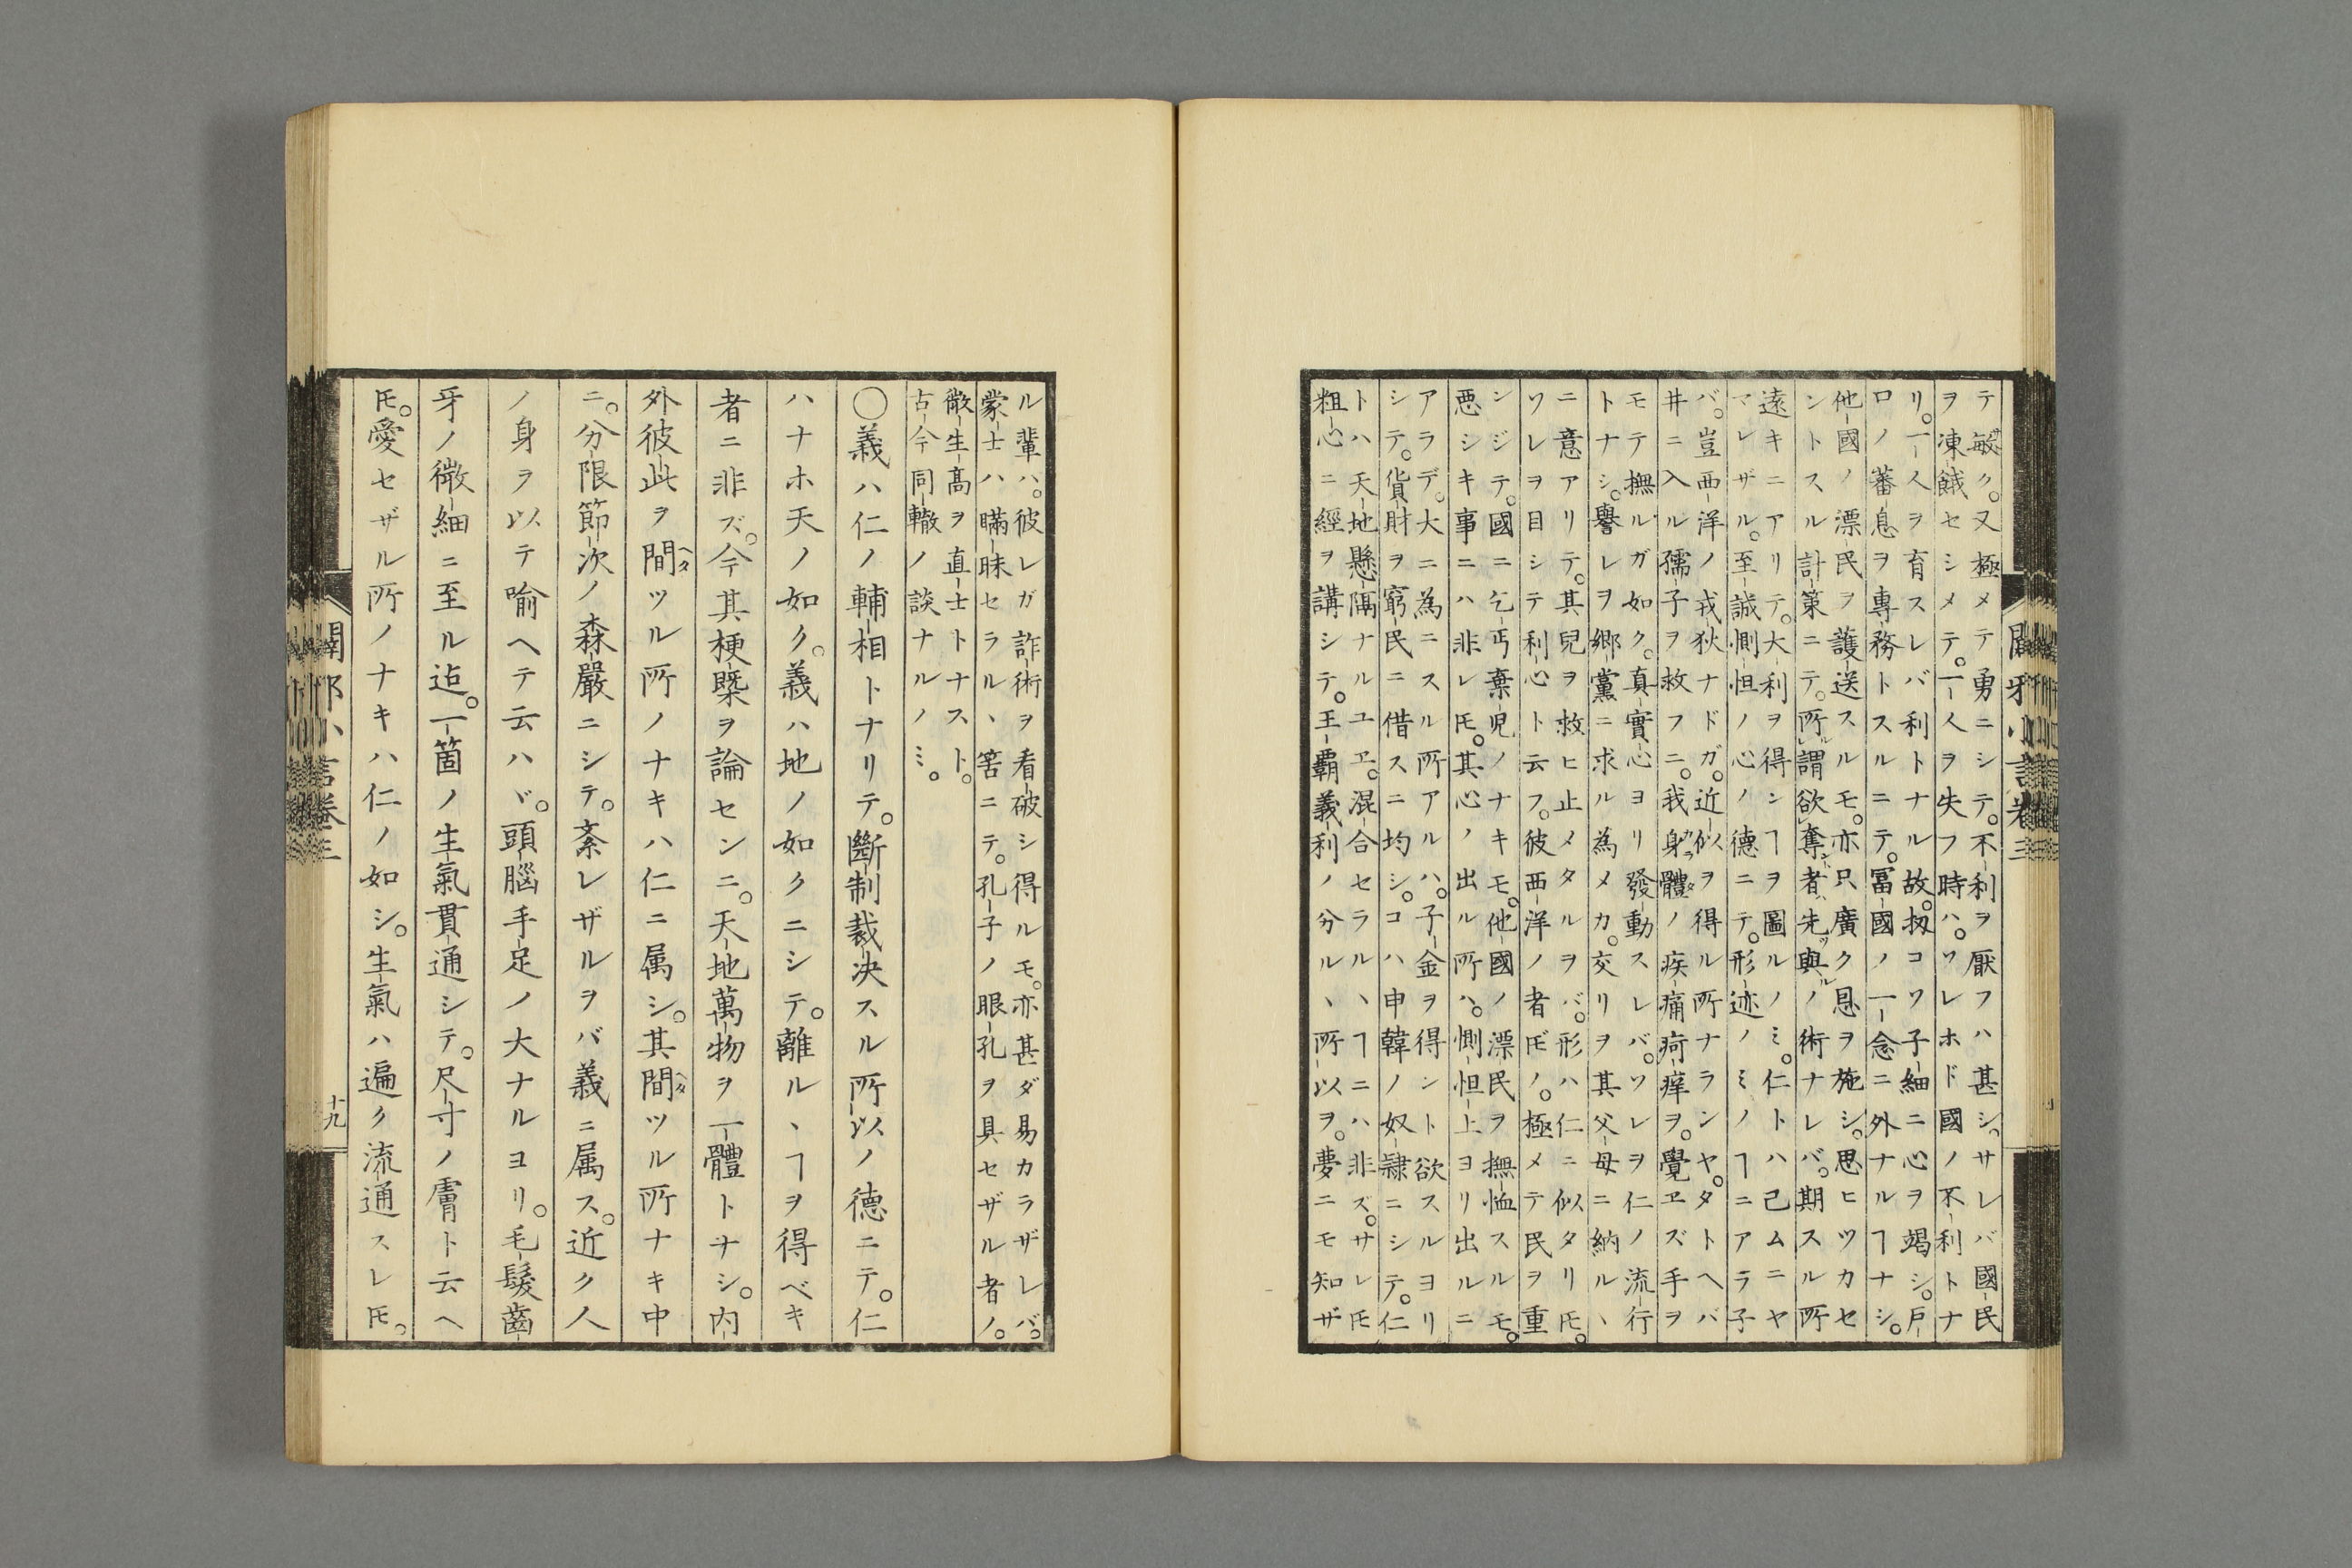 テ敏ク。又極メテ勇ニシテ。不利ヲ厭フハ甚シ。サレバ國民
ヲ凍餓セシメテ。一人ヲ失フ時ハ。ワレホド國ノ不利トナ
リ。一人ヲ育スレバ利トナル故。扨コワ子細ニ心ヲ竭シ。戸
口ノ蕃息ヲ專務トスルニテ。冨國ノ一念ニ外ナルヿナシ。
他國ノ漂民ヲ護送スルモ。亦只廣ク恩ヲ施シ。思ヒツカセ
ントスル計策ニテ。所謂欲奪者先與ノ術ナレバ。期スル所
遠キニアリテ。大利ヲ得ンヿヲ圖ルノミ。仁トハ己ムニヤ
マレザル。至誠惻怛ノ心ノ德ニテ。形迹ノミノヿニアラ子
バ。豈西洋ノ戎狄ナドガ。近似ヲ得ル所ナランヤ。タトヘバ
井ニ入ル孺子ヲ救フニ。我身體ノ疾痛疴痒ヲ。覺ヱズ手ヲ
モテ撫ルガ如ク。真實心ヨリ發動スレバ。ソレヲ仁ノ流行
トナシ。譽レヲ郷黨ニ求ル為メカ。交リヲ其父母ニ納ルヽ
ニ意アリテ。其兒ヲ救ヒ止メタルヲバ。形ハ仁ニ似タリ𪜈。
ソレヲ目シテ利心ト云フ。彼西洋ノ者𪜈ノ。極メテ民ヲ重
ンジテ。國ニ乞丐棄児ノナキモ。他國ノ漂民ヲ撫恤スルモ。
悪シキ事ニハ非レ𪜈。其心ノ出ル所ハ。惻怛上ヨリ出ルニ
アラデ。大ニ為ニスル所アルハ。子金ヲ得ント欲スルヨリ
シテ。貨財ヲ窮民ニ借スニ均シ。コハ申韓ノ奴隷ニシテ。仁
トハ天地懸隔ナルユヱ。混合セラルヽヿニハ非ズ。サレ𪜈
粗心ニ經ヲ講シテ。王覇義利ノ分ルヽ所以ヲ。夢ニモ知ザ
ル輩ハ。彼レガ詐術ヲ看破シ得ルモ。亦甚ダ易カラザレバ。
蒙士ハ瞞昧セラルヽ筈ニテ。孔子ノ眼孔ヲ具セザル者ノ。
微生高ヲ直士トナスト。
古今同轍ノ談ナルノミ。
〇義ハ仁ノ輔相トナリテ。斷制裁决スル所以ノ德ニテ。仁
ハナホ天ノ如ク。義ハ地ノ如クニシテ。離ルヽヿヲ得ベキ
者ニ非ズ。今其梗槩ヲ論センニ。天地萬物ヲ一體トナシ。内
外彼此ヲ間ツル所ノナキハ仁ニ属シ。其間ツル所ナキ中
ニ。分限節次ノ森嚴ニシテ。紊レザルヲバ義ニ属ス。近ク人
ノ身ヲ以テ喻ヘテ云ハヾ。頭腦手足ノ大ナルヨリ。毛髮齒
牙ノ微細ニ至ル迄。一箇ノ生氣貫通シテ。尺寸ノ膚ト云ヘ
𪜈。愛セザル所ノナキハ仁ノ如シ。生氣ハ遍ク流通スレ𪜈。
十九